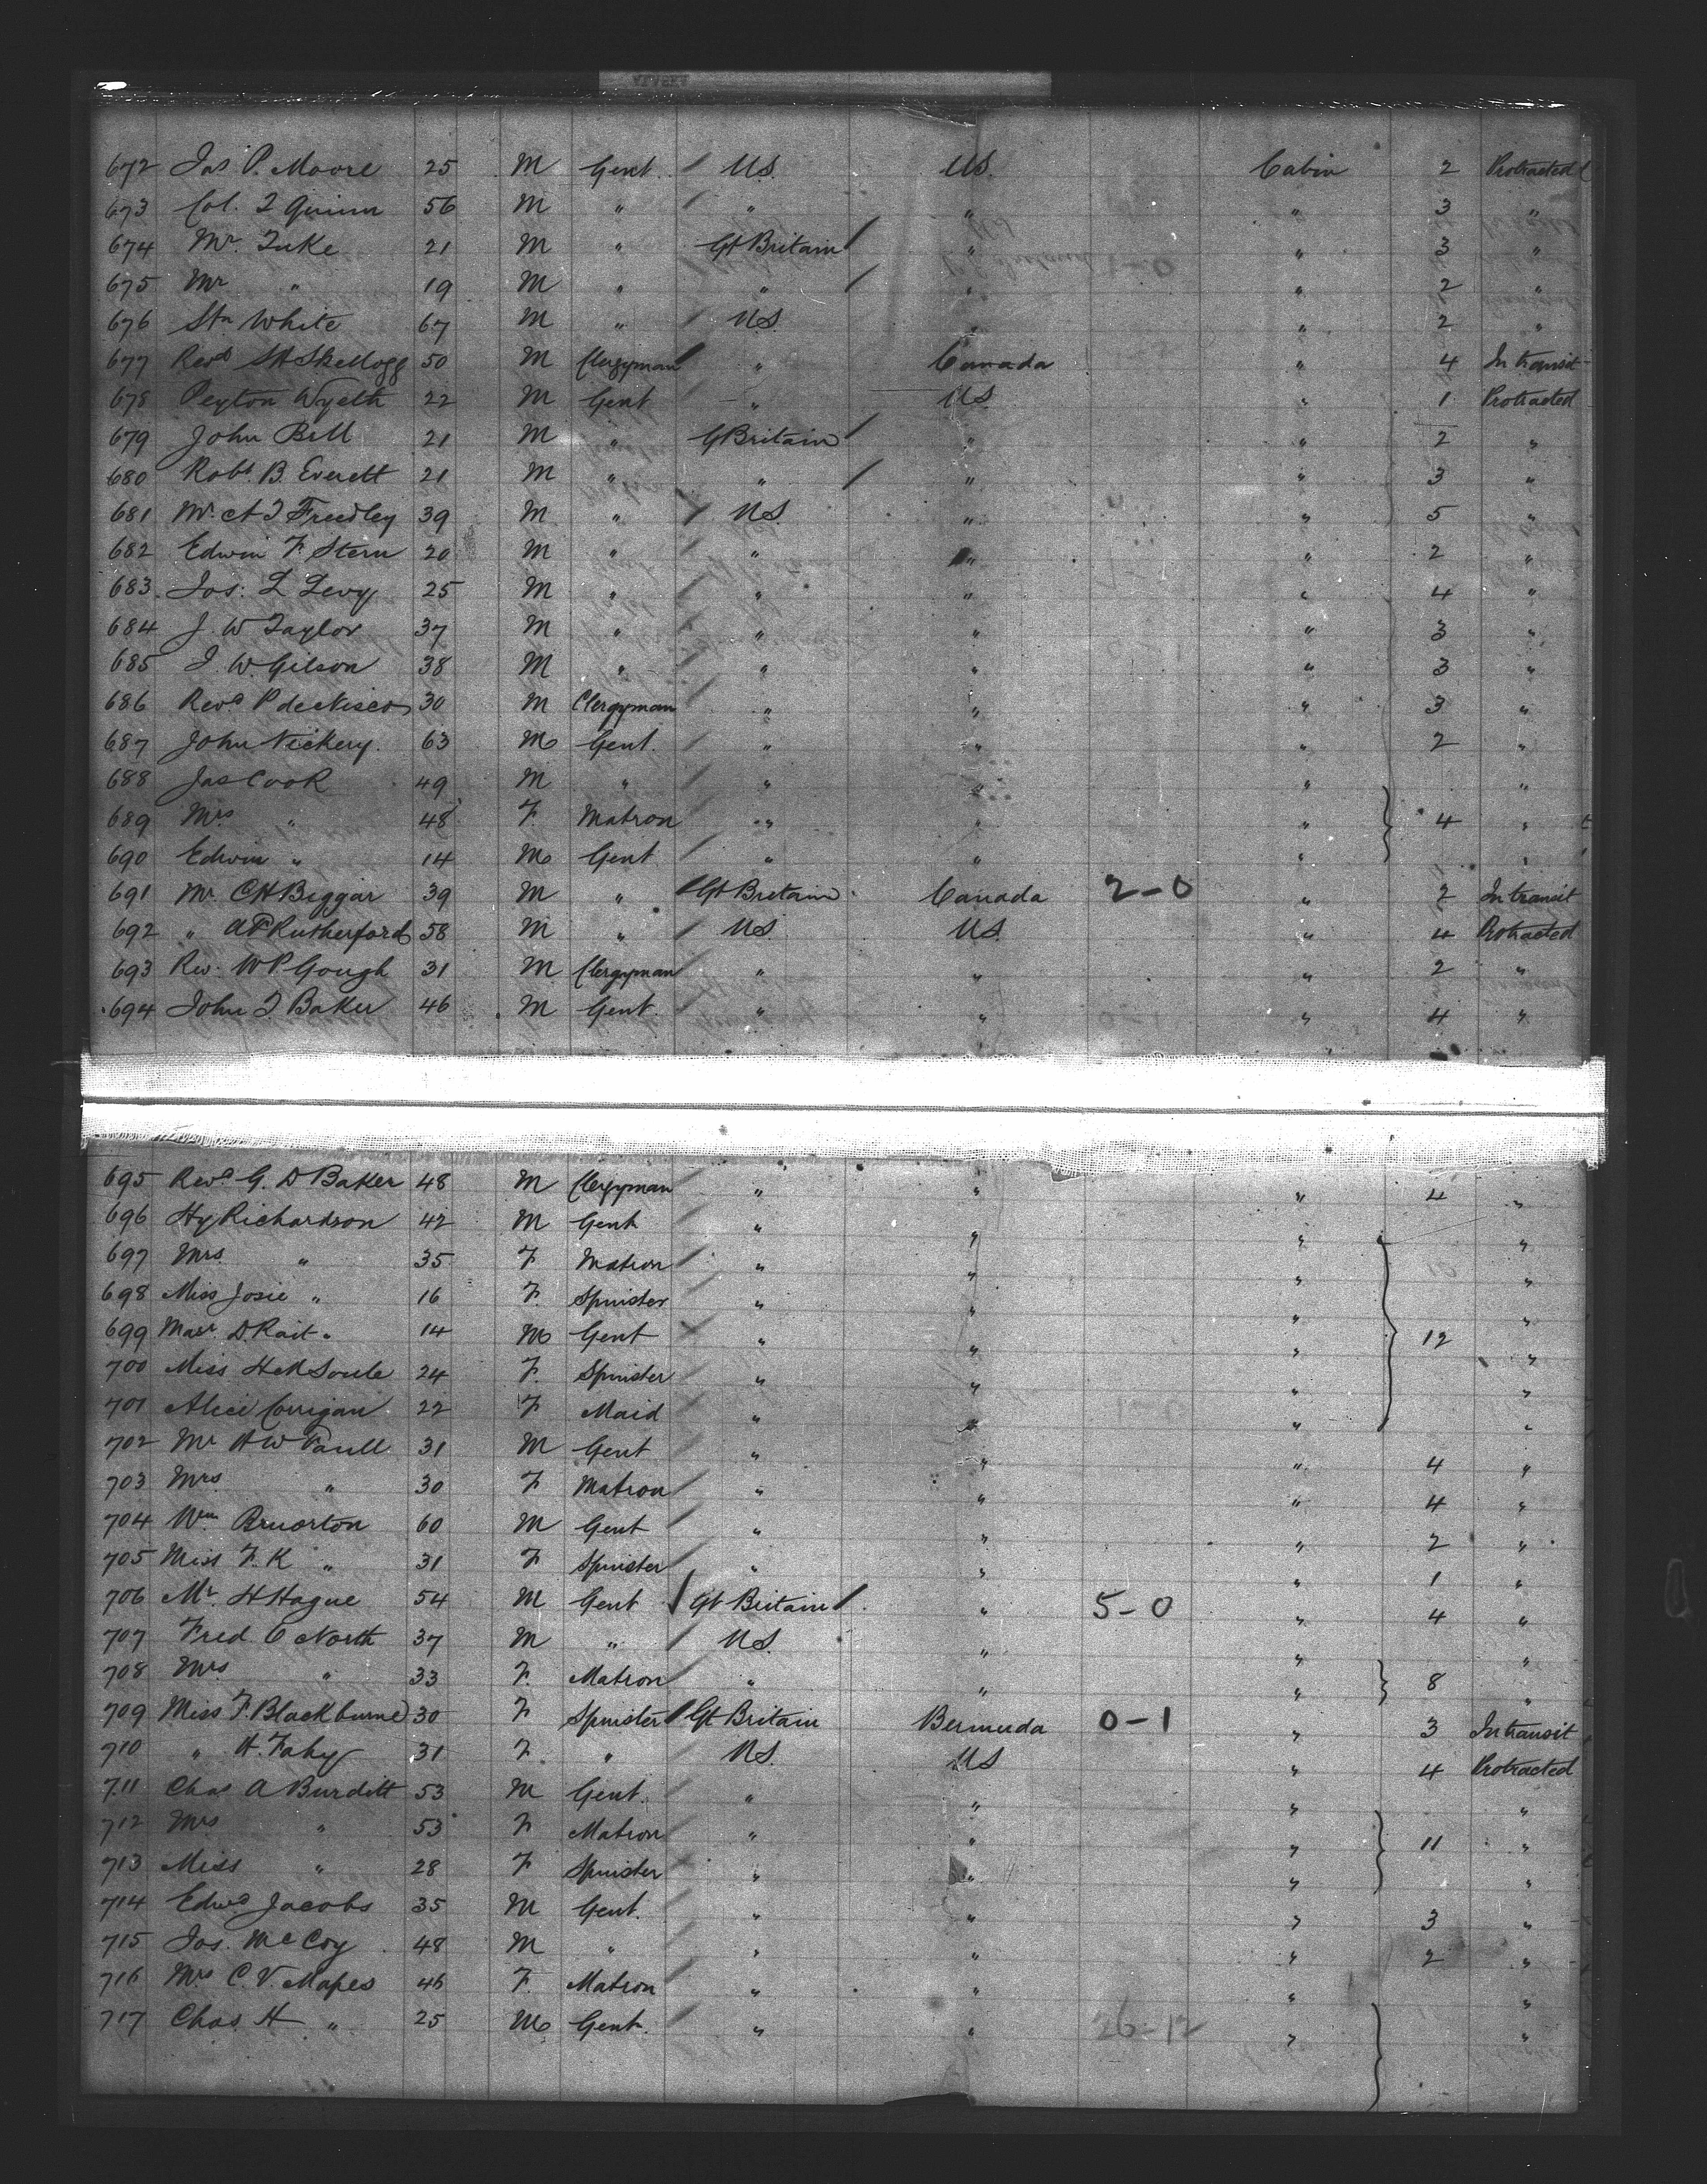 672 Jas P. Moore 25 M Gent. U.S. U.S. Cabin 2 Protracted
673 Col. T Quinn 56 M " " " " 3 "
674 Mr. Tuke 21 M " Gt Britain " " 3 "
675 Mr " 19 M " " " " 2 "
676 Stn White 67 M " U.S. " " 2 "
677 Revd SH Skellogg 50 M Clergyman " Canada " 4 In transit
678 Peyton Wyeth 22 M Gent " U.S. " 1 Protracted
679 John Bell 21 M " G Britain " " 2 "
680 Robt. B. Everett 21 M " " " " 3 "
681 Mr. A J Freedley 39 M " U.S. " " 5 "
682 Edwin F. Stern 20 M " " " " 2 "
683. Jos: L Levy 25 M " " " " 4 "
684 J. W Taylor 37 M " " " " 3 "
685 J. W. Gilson 38 M " " " " 3 "
686 Revd P de Nisco 30 M Clergyman " " " 3 "
687 John Vickery. 63 M Gent. " " " 2 "
688 Jas Cook 49 M " " " " "
689 Mrs " 48 F. Matron " " " 4 "
690 Edwin " 14 M Gent " " " "
691 Mr. CH Biggar 39 M " Gt Britain Canada 2-0 " 2 In transit
692 " AP Rutherford 58 M " U.S. U.S. " 4 Protracted
693 Rev. W P Gough 31 M Clergyman " " " 2 "
694 John J Baker 46 M Gent. " " " 4 "
695 Revd G. D Baker 48 M Clergyman " " " 4 "
696 Hy Richardson 42 M Gent " " " "
697 Mrs " 35 F Matron " " " "
698 Miss Josie " 16 F. Spinster " " " "
699 Masr. D Rait " 14 M Gent " " " 12 "
700 Miss H M Soule 24 F. Spinster " " " "
701 Alice Corrigan 22 F Maid " " " "
702 Mr A W Paull 31 M Gent " " " 4 "
703 Mrs " 30 F Matron " " " 4 "
704 Wm Bruorton 60 M Gent " " " 2 "
705 Miss F. K " 31 F Spinster " " " 1 "
706 Mr. H Hague 54 M Gent Gt Britain " 5-0 " 4 "
707 Fred C North 37 M " U.S. " " "
708 Mrs " 33 F. Matron " " " 8 "
709 Miss F. Blackburne 30 F Spinster Gt Britain Bermuda 0-1 " 3 In transit
710 " H. Fahy 31 F. " U.S. U.S " 4 Protracted
711 Chas A Burditt 53 M Gent. " " " "
712 Mrs " 53 F Matron " " " 11 "
713 Miss " 28 F Spinster " " " "
714 Edwd Jacobs 35 M Gent. " " " 3 "
715 Jos. McCoy 48 M " " " " 2 "
716 Mrs C. V. Mapes 46 F. Matron " " " "
717 Chas H " 25 M Gent. " " 26-12 " "